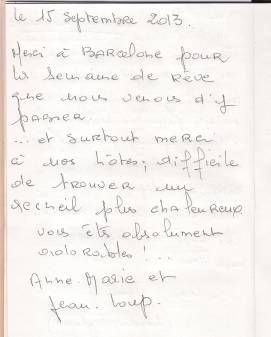 le 15 septembre 2013.
Merci à BARCELONE pour
la semaine de Rêve
que nous venons d'y
passer.
... et surtout merci
à nos hôtes; difficile
de trouver un
accueil plus chaleureux
vous êtes absolument
adorables ! ...
Anne. Marie et
Jean. Loup.